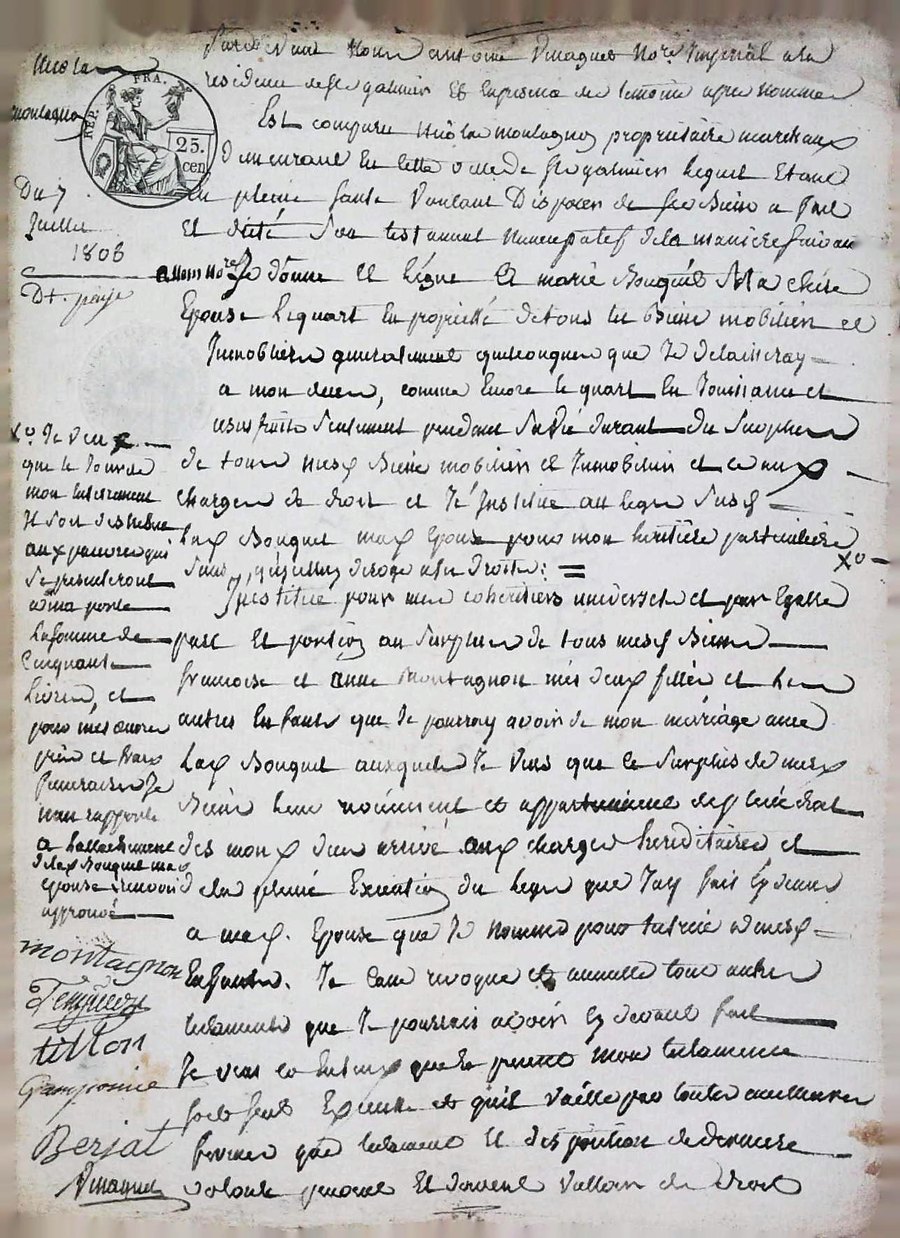 Nicolas
montagnon
REP. FRA.
25.
cen
Du 7
Juillet
1806
Dt. payé
Pardevant Nous antoine Vinagnet Nore Imperial a la
residence de St galmier Et En presence de temoins apres nommes
Est comparu Nicolas montagnon propriétaire marchand
Demeurant En cette ville de St galmier lequel Etant
En pleine santé Voulant Disposer de ses Biens a fait
Et dicté Son testament Nuncupatif de la maniere suivante
a nous Nore Je donne et lègue a marie Bouquet Ma chère
Epouse le quart En propriété de tous les Biens mobiliers et
Immobiliers generalement quelconques que Je delaisseray
a mon deces, comme Encore le quart En Jouissance et
usufruits Seulement pendant Sa Vie durant du Surplus
de tous mes Biens mobiliers et Immobiliers et ce aux
charges de droit et J'Institue au legs Susd
Lad Bouquet mad Epouse pour mon heritière particulière
Sans qu'elle déroge a ses Droits: =
J'institue pour mes cohéritiers universels et par Egalle
part et portion au Surplus de tous mesd Biens
francoise et anne Montagnon mes deux filles et les
autres Enfants que Je pourray avoir de mon mariage avec
Lad Bouquet auxquels Je Veux que le Surplus de mes
Biens leur reviennent et appartiennent de plein droit
des mon d deces arrivé aux charges héréditaires et
de la pleine Execution du legs que J'ay fait Cy devant
a mad. Epouse que Je nomme pour tutrice a mesd
Enfants. Je Casse revoque et annulle tous autres
testaments que Je pourrois avoir Cy devant fait
Je veux et entends que le present mon testament
soit seul Executé et qu'il vaille par toutes meilleures
formes que testament et disposition de derniere
volonté peuvent Et doivent valloir de Droit
Xo Je veux
que le Jour de
mon Enterrement
Il soit distribué
aux pauvres qui
Se presenteront
a ma porte
la somme de
Cinquante
livres, et
pour mes œuvres
pies et frais
funeraires Je
m'en rapporte
a l'attachement
de lad Bouquet mad
Epouse renvoi
approuvé
montagnon
tillon
Berjat
Vinagnet